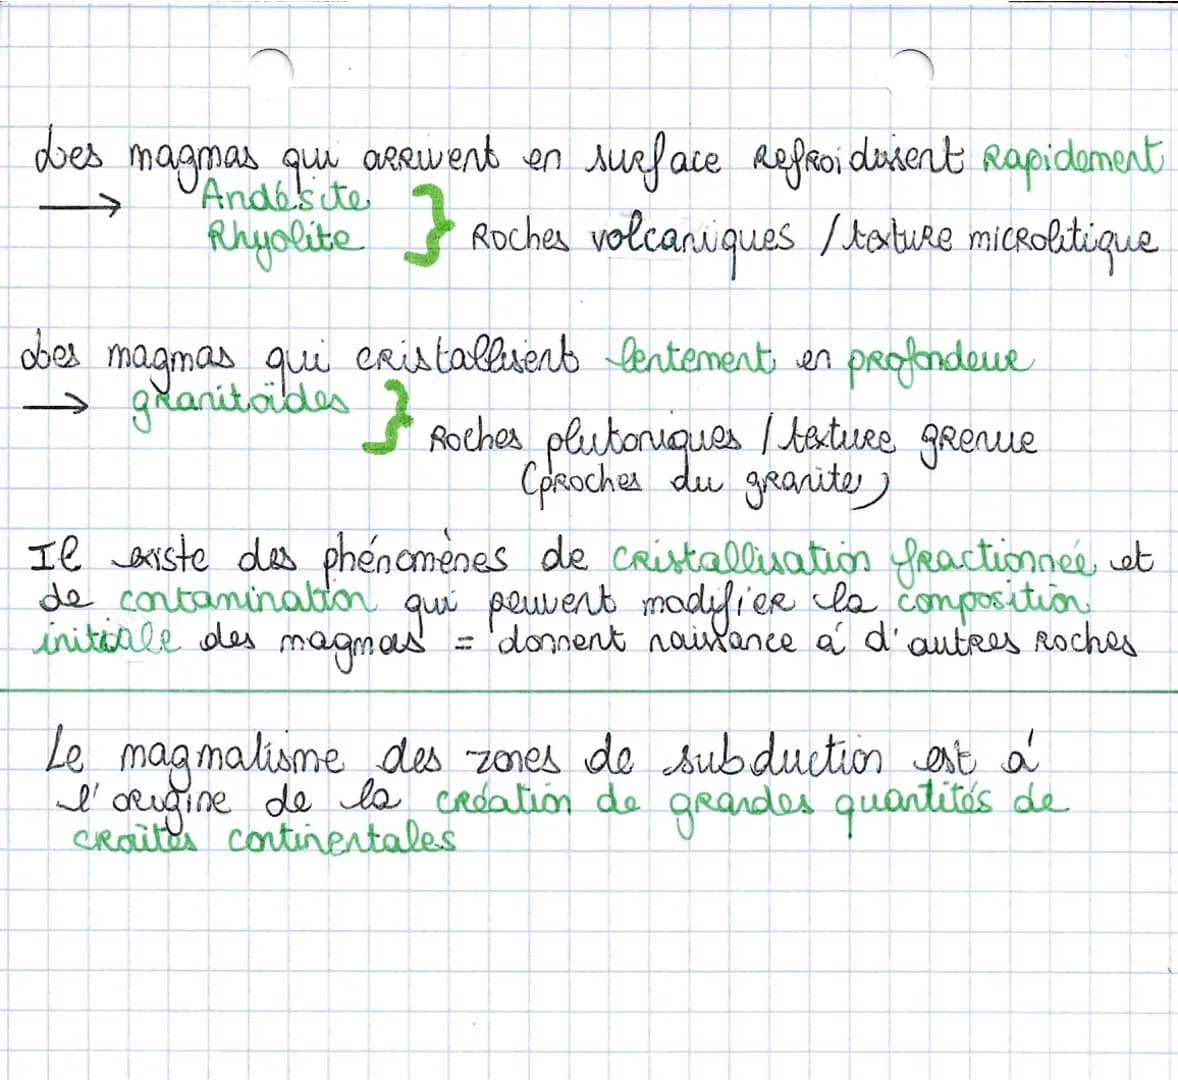 Les magmas qui arrivent en surface refroidissent rapidement
→ Andésite
Rhyolite } Roches volcaniques / texture microlitique
Les magmas qui cristallisent lentement en profondeur
→ granitoïdes }
Roches plutoniques / texture grenue
(proches du granite)
Il existe des phénomènes de cristallisation fractionnée et
de contamination qui peuvent modifier la composition
initiale des magmas = donnent naissance à d'autres roches
Le magmatisme des zones de subduction est à
l'origine de la création de grandes quantités de
croûtes continentales